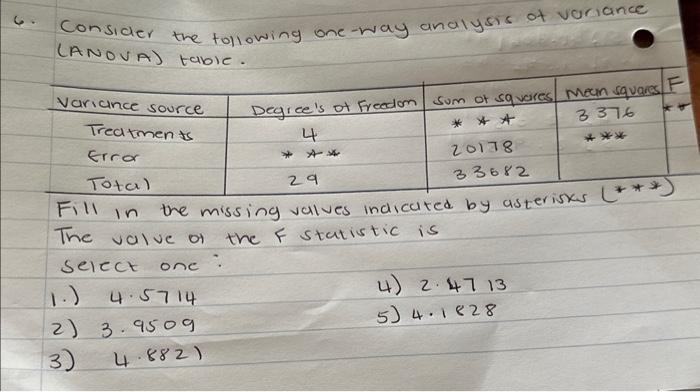 6. Consider the following one-way analysis of variance
(ANOVA) table.
Variance source Degree's of Freedom Sum of squares Mean squares F
Treatments 4 *** 3376 **
Error *** 20178 ***
Total 29 33682
Fill in the missing values indicated by asterisks (***)
The value of the F statistic is
select one :
1.) 4.5714
2) 3.9509
3) 4.8821
4) 2.4713
5) 4.1828